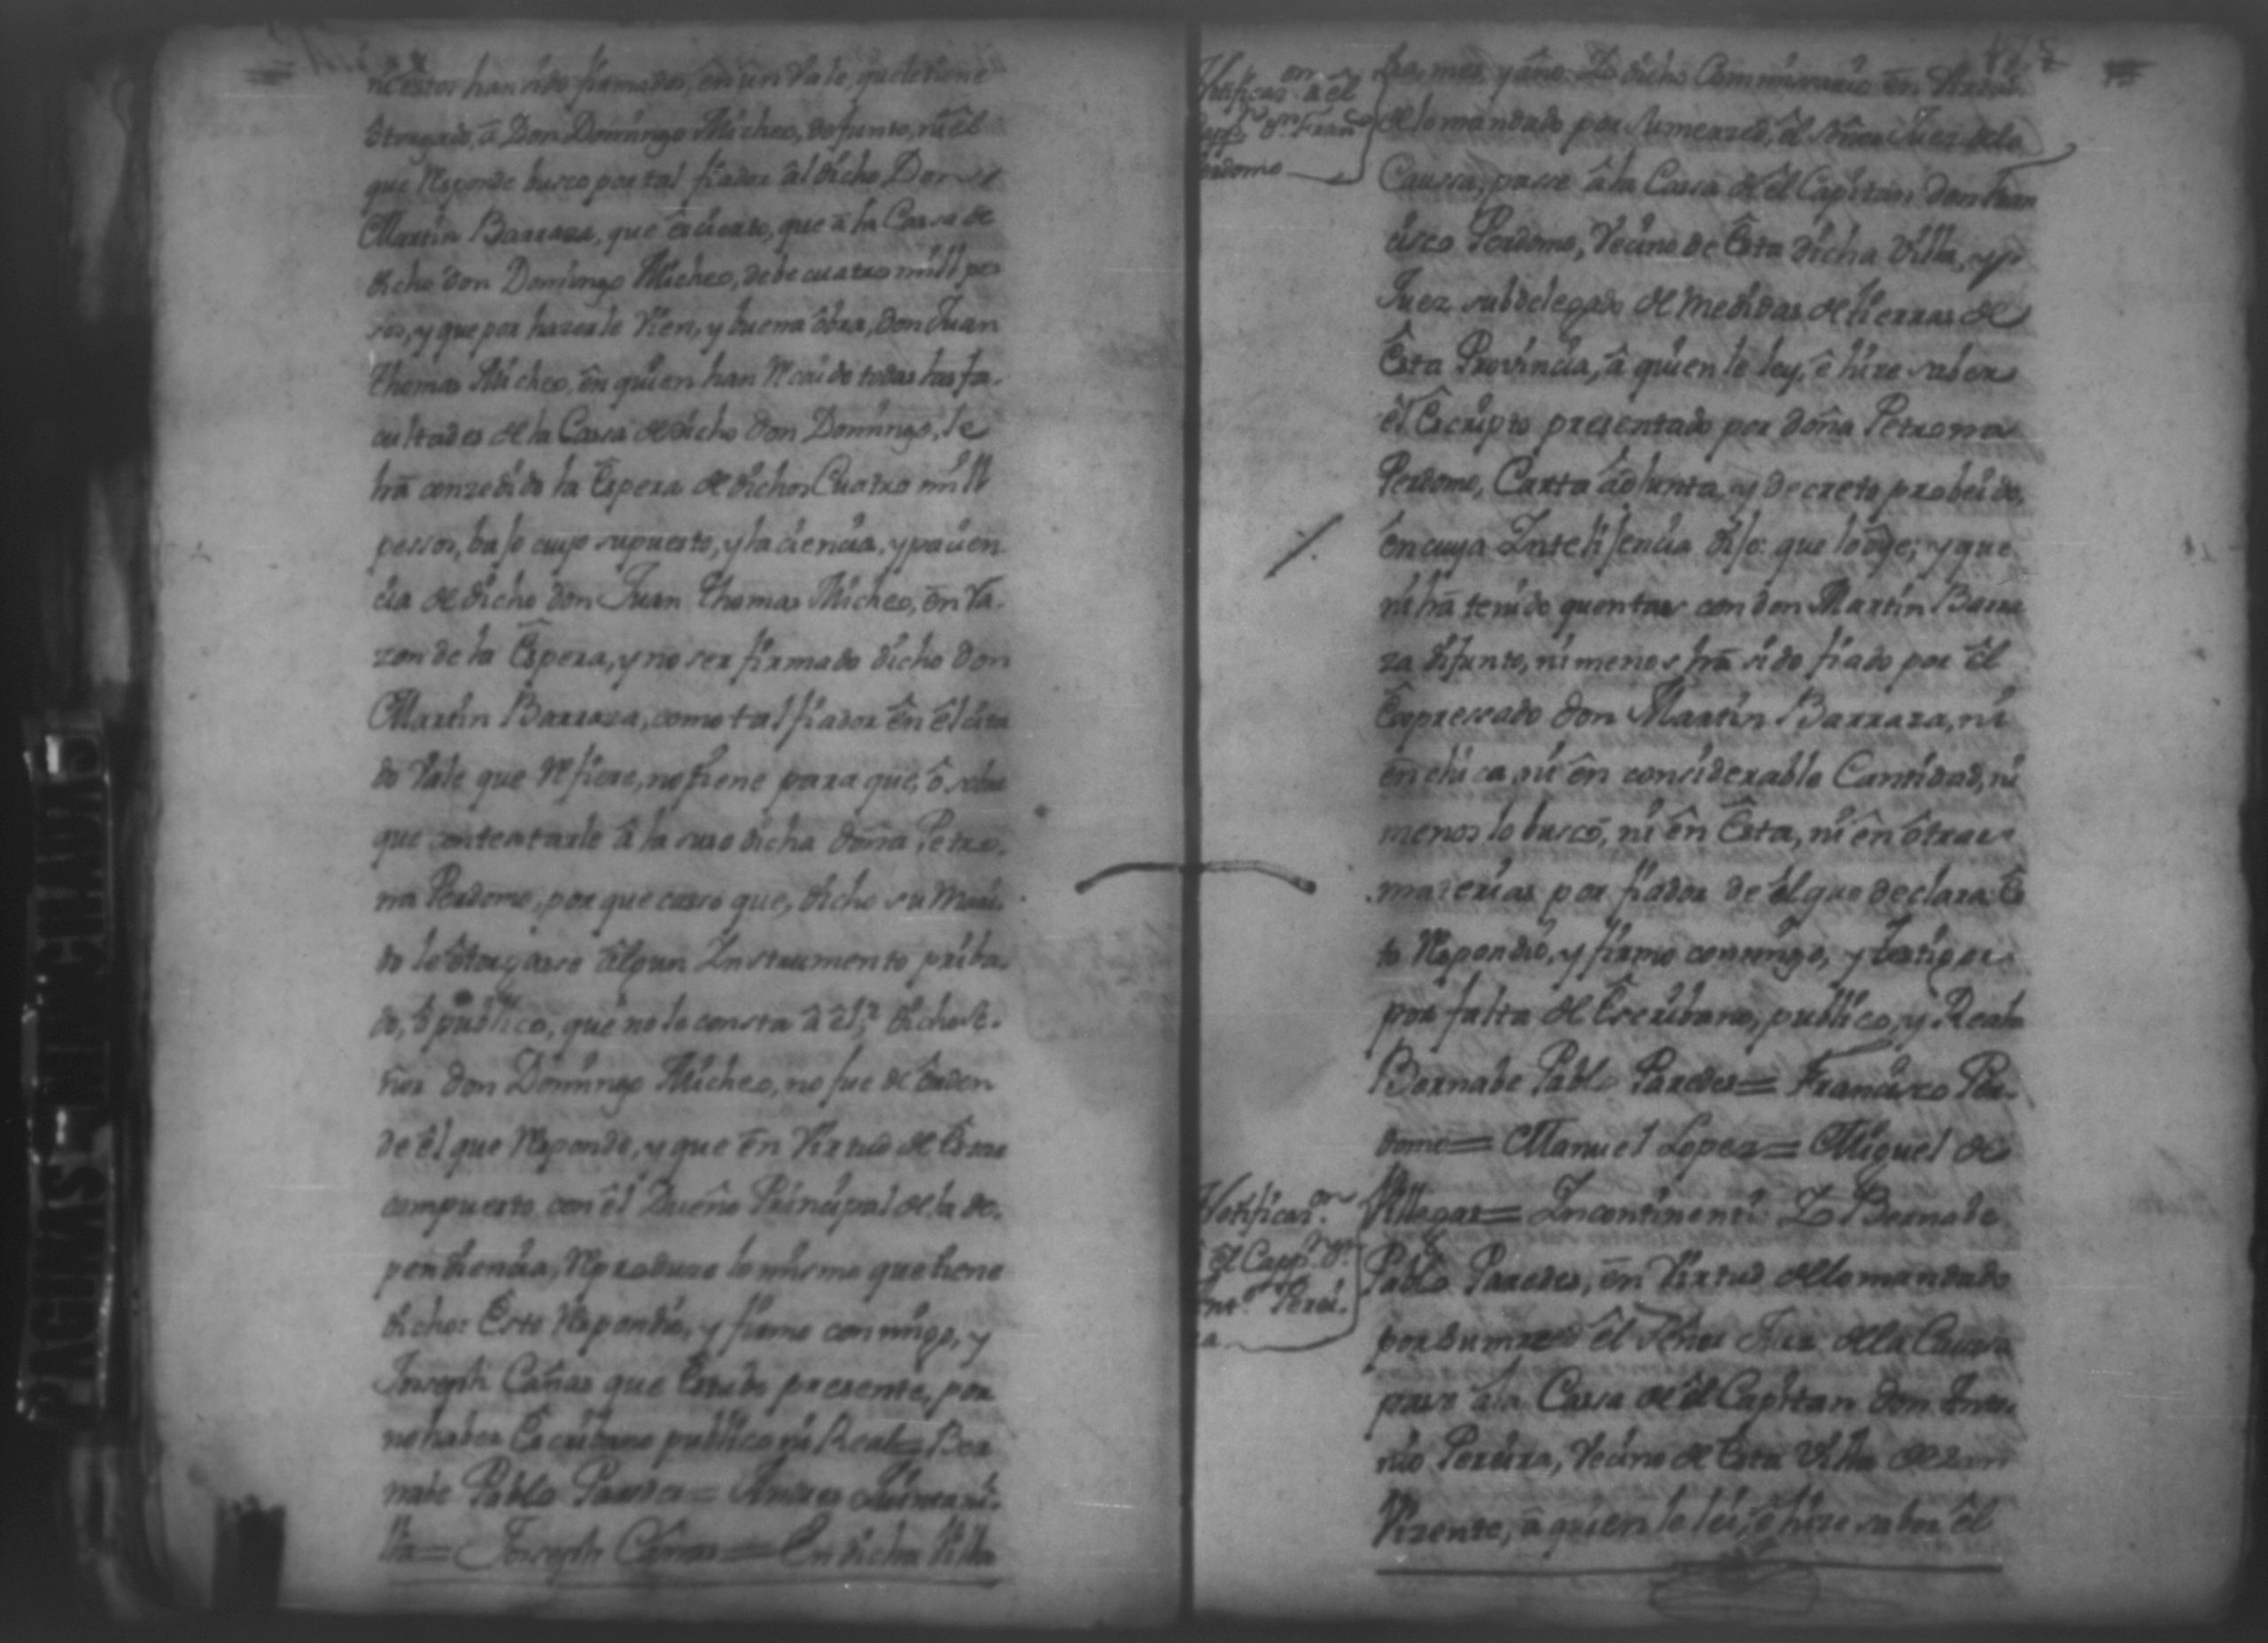 ni estos han sido firmados, ên ûn Vale, que le tiene
ôtorgado, â Don Domingo Micheo, defunto, ni êl
que Responde busco por tal fiador âl dicho Don
Martin Barraza, que ês cierto, que â la Cassa de
dicho don Domingo Micheo, debe cuatro mill pe
sos, y que por hazerle Vien, y buena ôbra, don Juan
Thomas Micheo, ên quien han Recaido todas las fa-
cultades de la Cassa de dicho don Domingo, le
hâ conzedido la Êspera de dichos Cuatro mill
pessos, bajo cuyo supuesto, y la ciencia, y pacien
cia de dicho don Juan Thomas Micheo, ên Ra-
zon de la Êspera, y no ser firmado dicho don
Martin Barraza, como tal fiador ên êl cita
do Vale que Refiere, no tiene para que, ô sobre
que contestarle â la suso dicha doña Petro-
na Perdomo, por que casso que, dicho su Mari-
do le ôtorgasse âlgun Instrumento priba-
do, ô publico, que no le consta â êl, dicho Se-
ñor don Domingo Micheo, no fue de ôrden
de êl que Responde, y que ên Virtud de Êstar
compuesto con êl Dueño Principal de la de-
pendiencia, Reproduce lo mismo que tiene
dicho: Esto Respondio, y firmo conmigo, y
Joseph Cañas que Êstubo presente, por
no haber Êscribano publico ni Real = Ber
nabe Pablo Paredes = Andres Quintani-
lla = Joseph Cañas = En dicha Villa
Notificaz.on â êl
Capp.n d.n Fran.co
Perdomo
dia, mes, y año. Yo dicho Commissario ên Virtud
de lo mandado por su merced, êl señor Juez de la
Caussa, passe â la Cassa de êl Capitan don Fran
cisco Perdomo, Vecino de Êsta dicha Villa, y
Juez subdelegado de Medidas de tierras de
Êsta Provincia, â quien le ley, ê hize saber
êl Êscripto presentado por doña Petrona
Perdomo, Carta âdjunta, y decreto probeido,
ên cuya Intelijencia dijo: que lo ôye; y que
ni hâ tenido quentas con don Martin Barra
za difunto, ni menos hâ sido fiado por êl
Êxpressado don Martin Barraza, ni
ên chica, ni ên considerable Cantidad, ni
menos lo buscô, ni ên Êsta, ni ên ôtras
materias por fiador de êl que declara: Ês
to Respondio, y firmo conmigo, y testigos
por falta de Êscribano, publico, y Real =
Bernabe Pablo Paredes = Francisco Per-
domo = Manuel Lopez = Miguel de
Notificaz.on
â êl Capp.n d.n
Ant.o Perei-
ra
Villegas = Incontinenti Yo Bernabe
Pablo Paredes, ên Virtud de lo mandado
por su merced êl Señor Juez de la Caussa
passe â la Cassa de êl Capitan don Anto-
nio Pereira, Vecino de Êsta Villa de san
Vizente, â quien le lei, ê hize saber êl